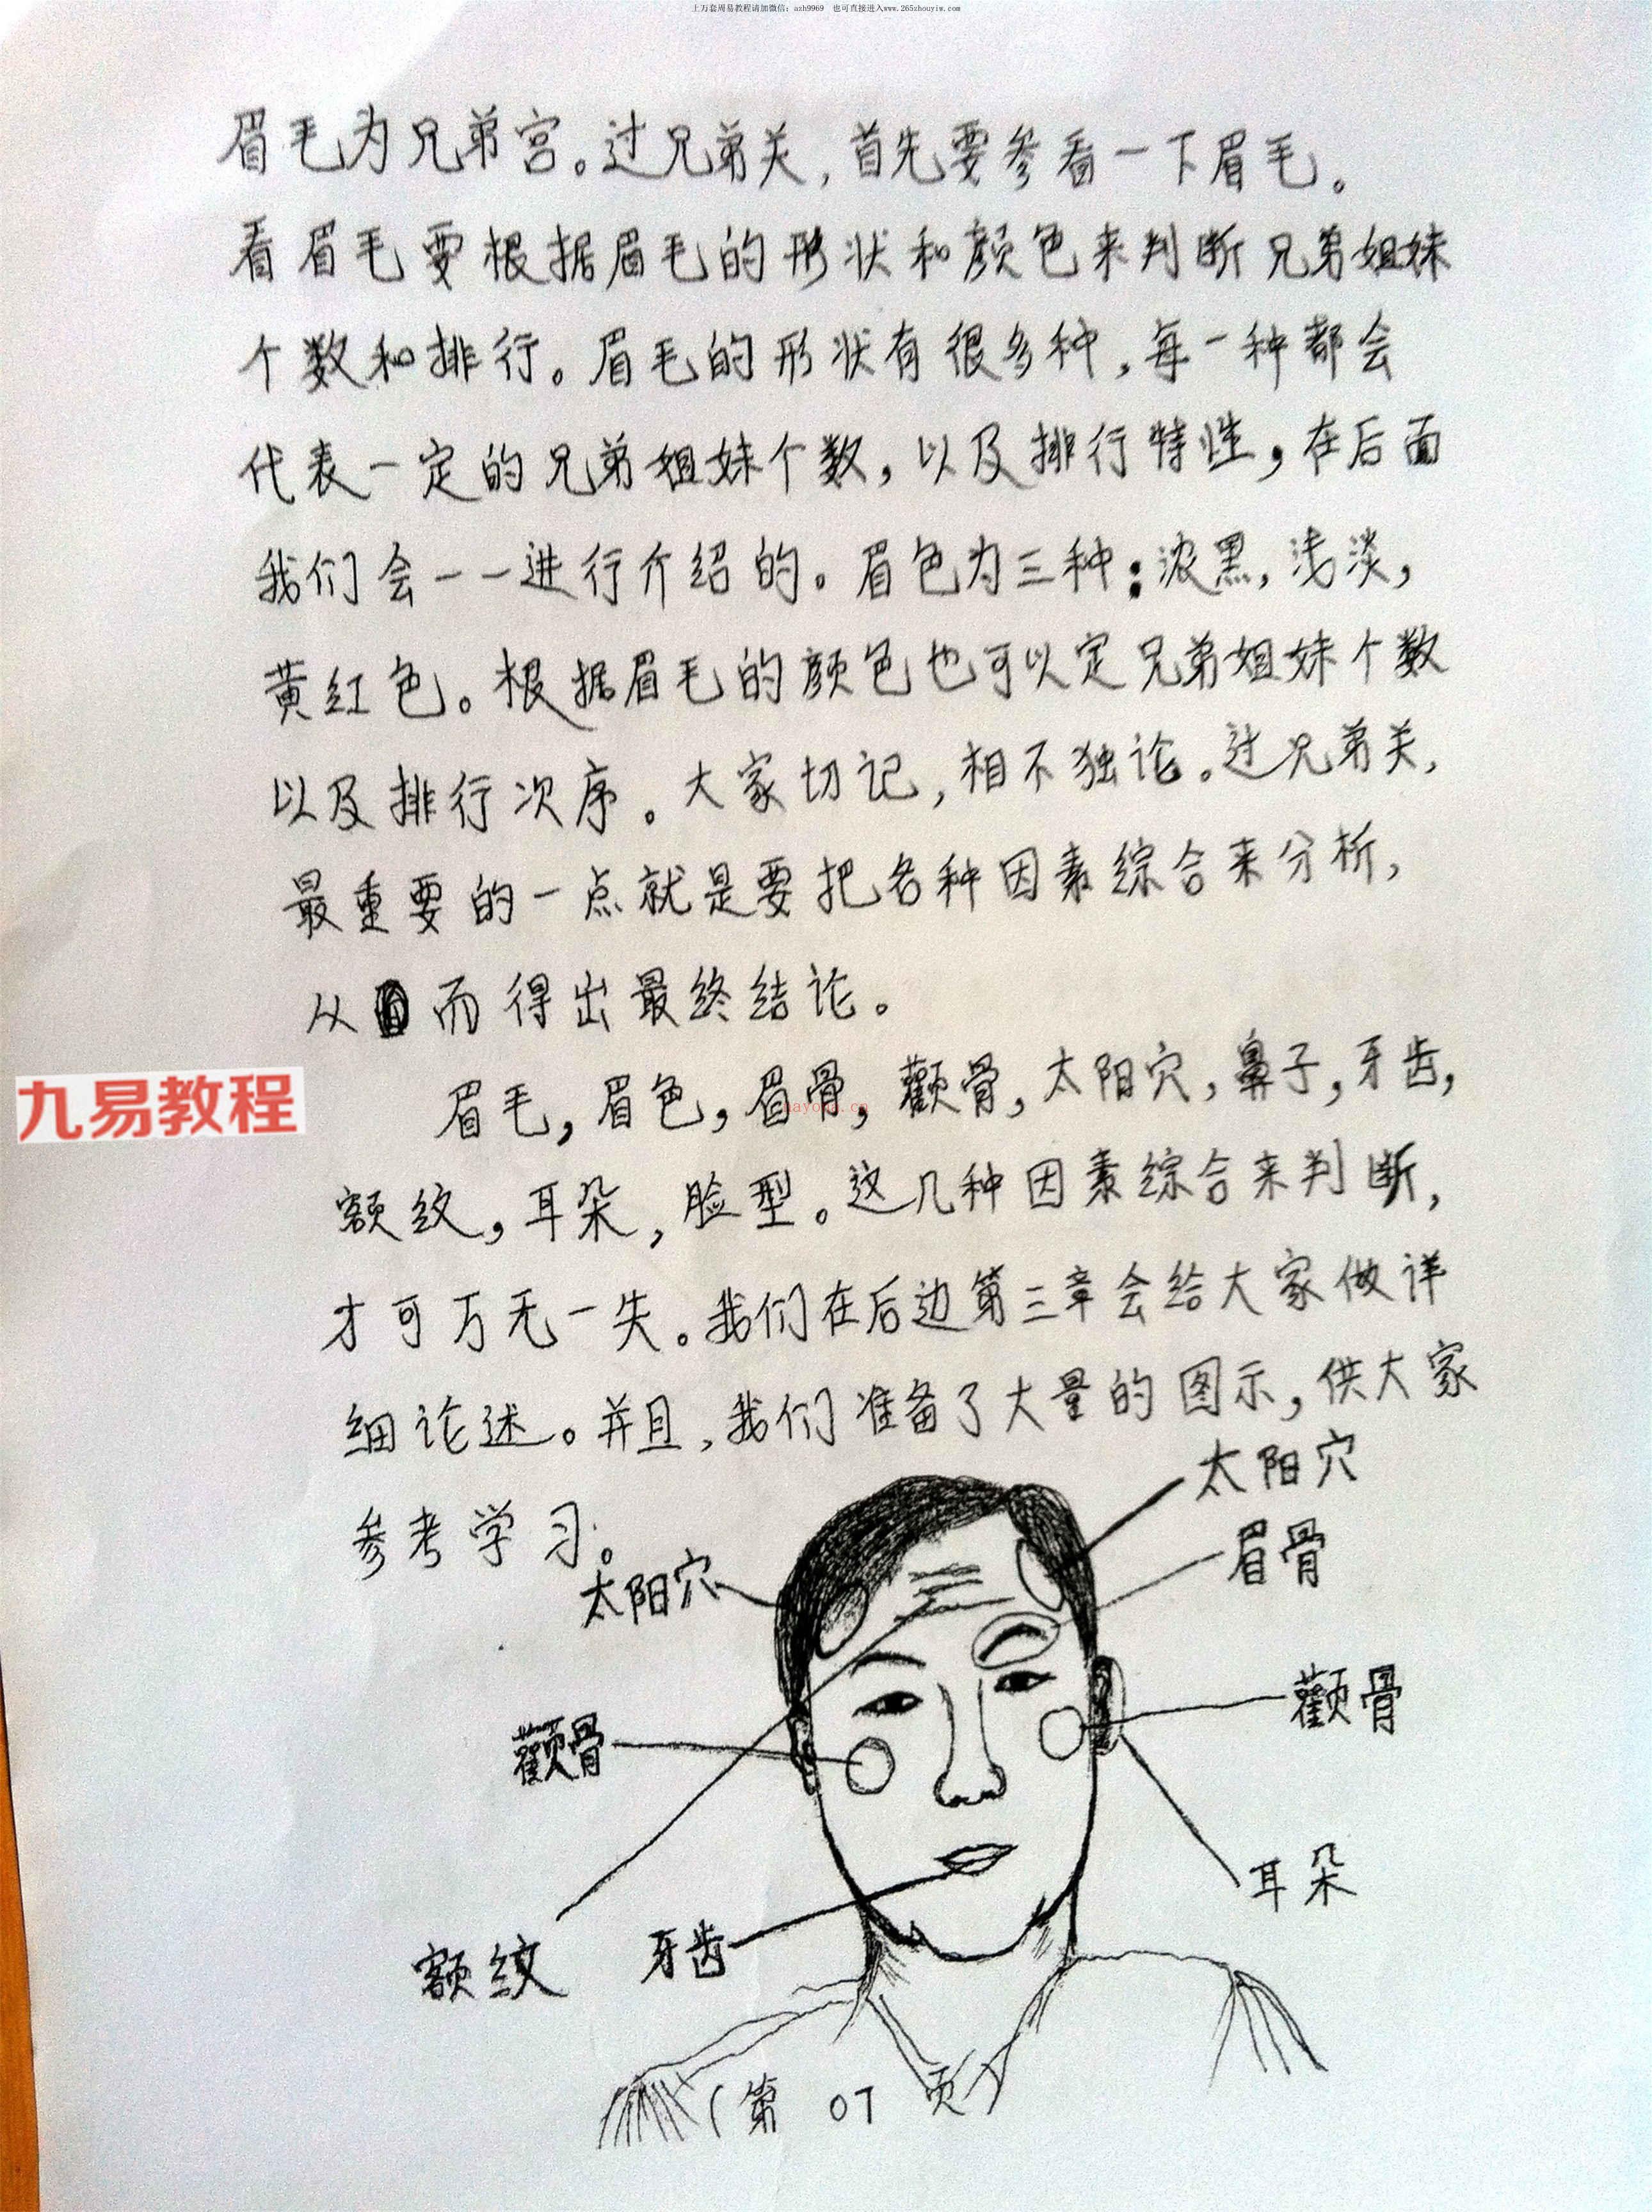 上万套周易教程请加微信：azh9969 也可直接进入www.265zhouyiw.com
眉毛为兄弟宫。过兄弟关，首先要参看一下眉毛。
看眉毛要根据眉毛的形状和颜色来判断兄弟姐妹
个数和排行。眉毛的形状有很多种，每一种都会
代表一定的兄弟姐妹个数，以及排行特性，在后面
我们会一一进行介绍的。眉色为三种：浓黑，浅淡，
黄红色。根据眉毛的颜色也可以定兄弟姐妹个数
以及排行次序。大家切记，相不独论。过兄弟关，
最重要的一点就是要把各种因素综合来分析，
从而得出最终结论。
九易教程
眉毛，眉色，眉骨，颧骨，太阳穴，鼻子，牙齿，
额纹，耳朵，脸型。这几种因素综合来判断，
才可万无一失。我们在后边第三章会给大家做详
细论述。并且，我们准备了大量的图示，供大家
参考学习。
太阳穴
太阳穴
眉骨
颧骨
颧骨
耳朵
额纹
牙齿
（第 07 页）